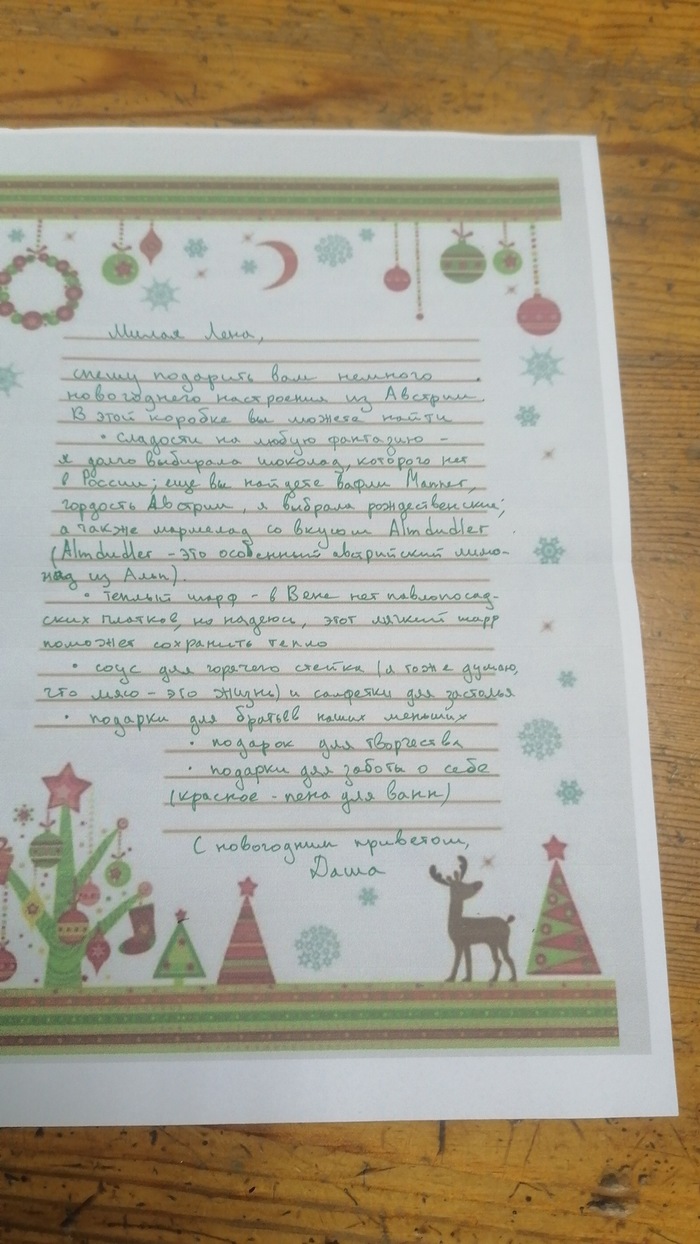 Милая Лена,
спешу подарить вам немного
новогоднего настроения из Австрии.
В этой коробке вы можете найти
• сладости на любую фантазию -
я долго выбирала шоколад, которого нет
в России; еще вы найдете вафли Manner,
гордость Австрии, я выбрала рождественские;
а также мармелад со вкусом Almdudler
(Almdudler - это особенный австрийский лимо-
над из Альп).
• теплый шарф - в Вене нет павлопосад-
ских платков, но надеюсь, этот мягкий шарф
поможет сохранить тепло
• соус для горячего стейка (я тоже думаю,
что мясо - это жизнь) и салфетки для застолья
• подарки для братьев наших меньших
• подарок для творчества
• подарки для заботы о себе
(красное - пена для ванн)
С новогодним приветом,
Даша